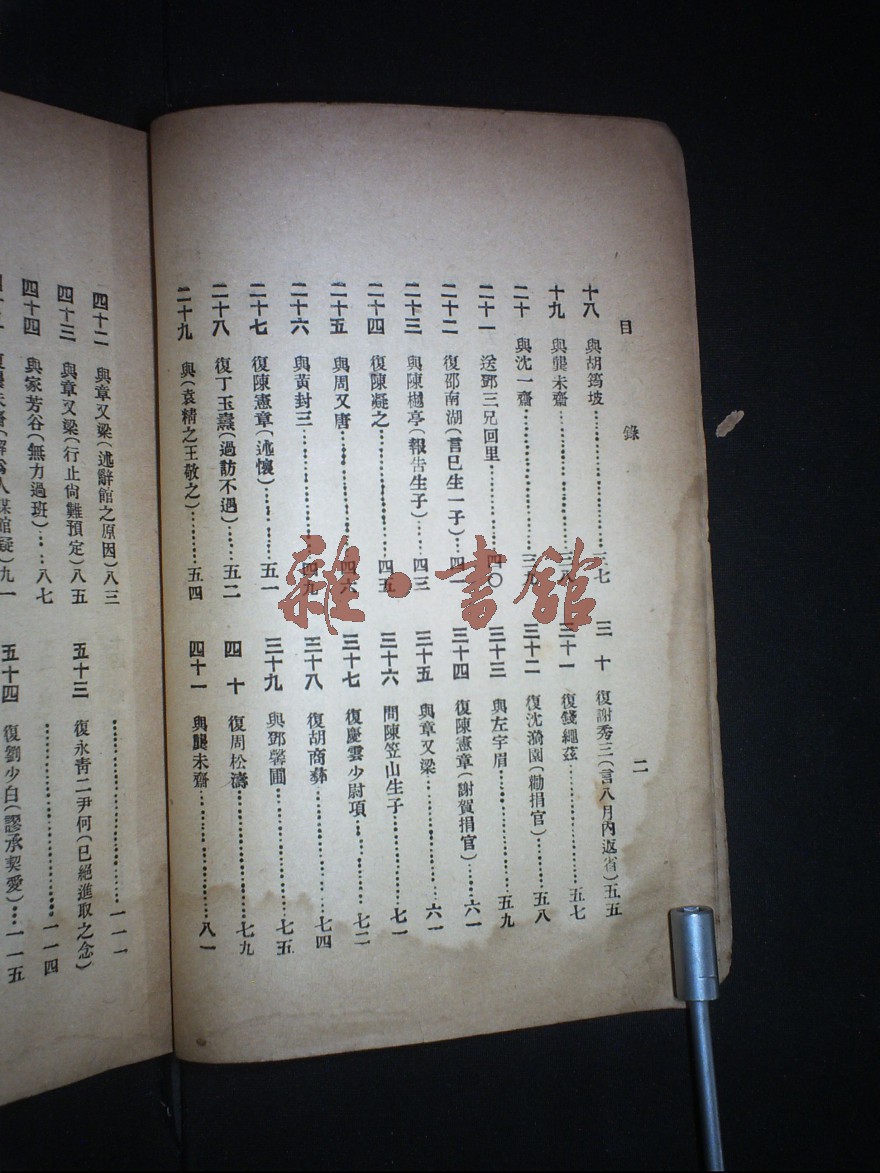 目錄
二
十八 與胡筠坡……三七
十九 與龔未齋……三八
二十 與沈一齋……三九
二十一 送鄧三兄回里……四〇
二十二 復邵南湖(言已生一子)…四一
二十三 與陳樾亭(報告生子)…四三
二十四 復陳凝之……四五
二十五 與周又唐……四六
二十六 與黃封三……四九
二十七 復陳憲章(述懷)……五一
二十八 復丁玉燾(過訪不遇)……五二
二十九 與(袁精之王敬之)……五四
三十 復謝秀三(言八月內返省)五五
三十一 復錢繩茲……五七
三十二 復沈漪園(勸捐官)……五八
三十三 與左宇眉……五九
三十四 復陳憲章(謝賀捐官)…六一
三十五 與章又梁……六一
三十六 問陳笠山生子……七一
三十七 復慶雲少尉項……七二
三十八 復胡商彝……七四
三十九 與鄧馨圃……七五
四十 復周松濤……七九
四十一 與龔未齋……八一
雜·書館
四十二 與章又梁(述辭館之原因)八三
四十三 與章又梁(行止尙難預定)八五
四十四 與家芳谷(無力過班)…八七
九一
……一一一
五十三 復永靑二尹何(已絕進取之念)
……一一四
五十四 復劉少白(謬承契愛)…一一五